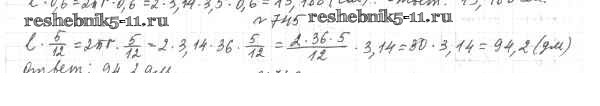 ℓ · 0,6 = 2πr · 0,6 = 2 · 3,14 · 3,5 · 0,6 = 13,188 (см).
reshebnik5-11.ru
№ 745
reshebnik5-11.ru
ℓ · 5/12 = 2πr · 5/12 = 2 · 3,14 · 36 · 5/12 = 2·36·5/12 · 3,14 = 30 · 3,14 = 94,2 (дм)
Ответ: 94,2 дм